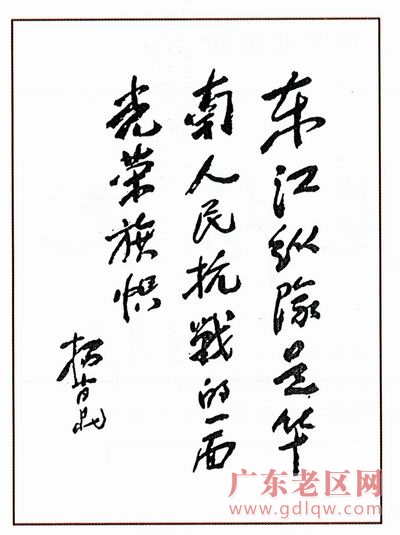 东江纵隊是华
南人民抗戰的一面
光荣旗帜
广东老区网
www.gdlqw.com